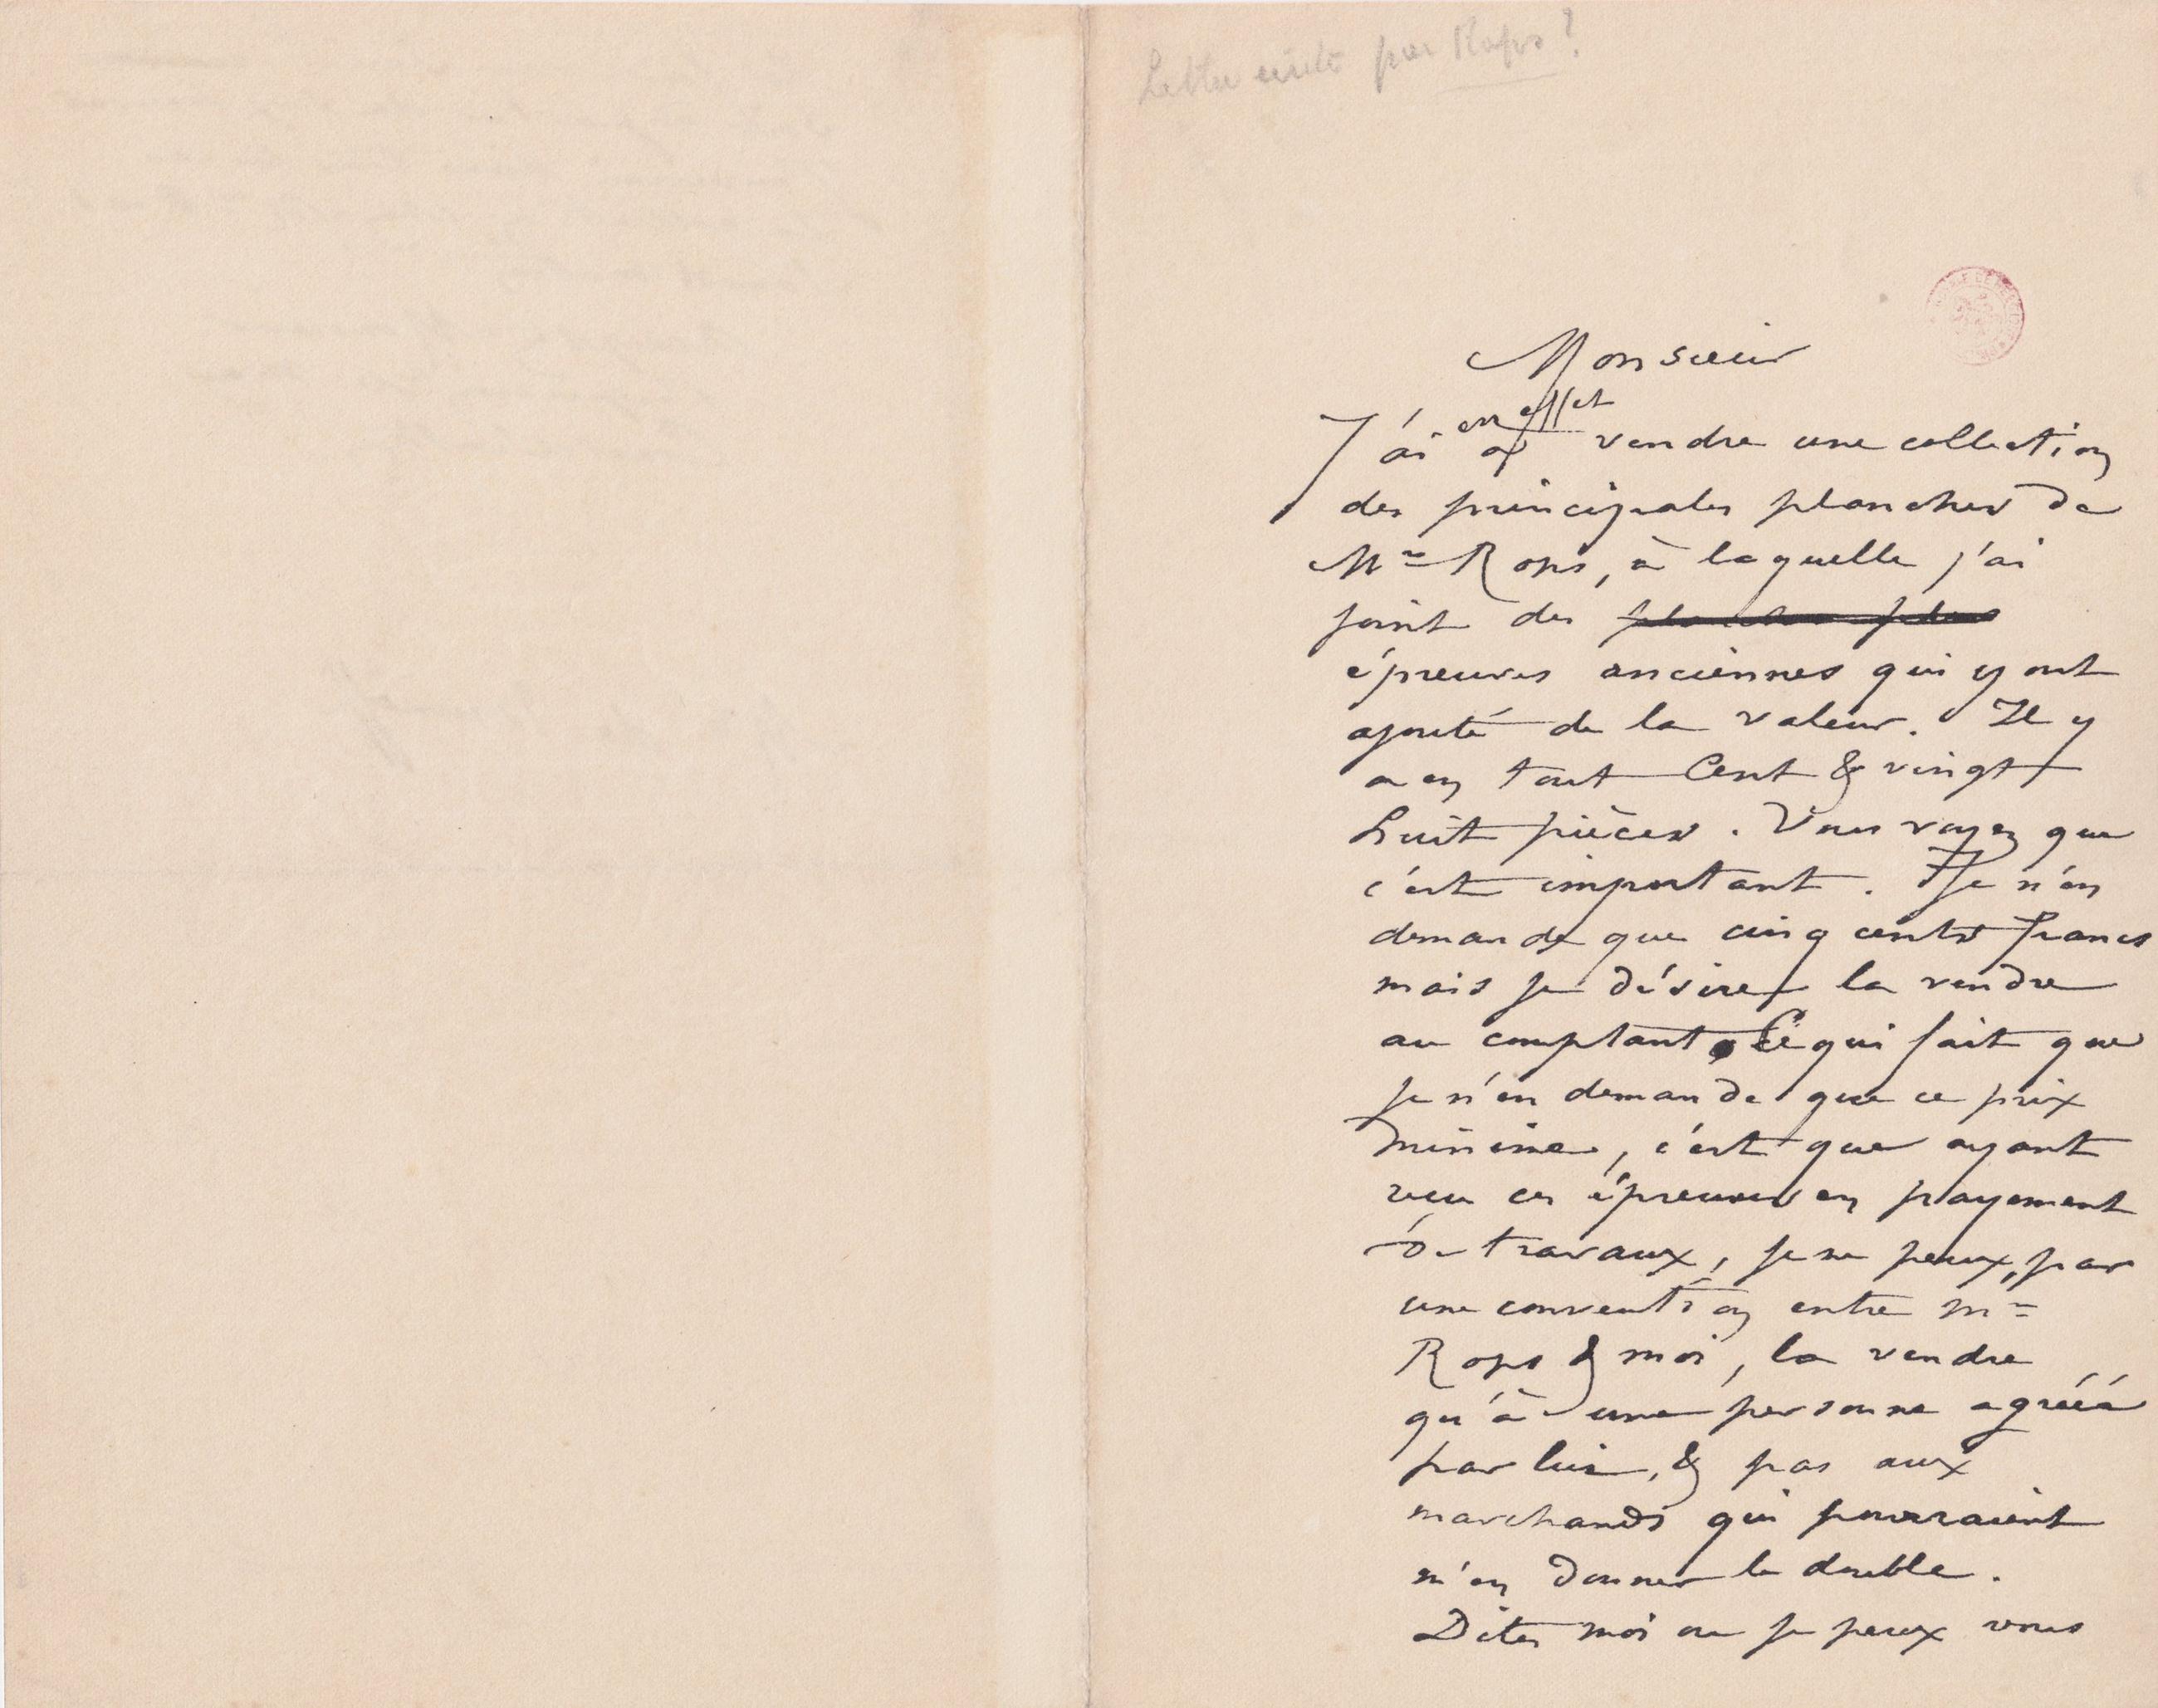 Lettre écrite par Rops ?
Monsieur
J'ai en effet à vendre une collection
des principales planches de
Mr Rops, à laquelle j'ai
joint des planches plus
épreuves anciennes qui y ont
ajouté de la valeur. Il y
a en tout Cent & vingt
huit pièces. Vous voyez que
c'est important. Je n'en
demande que cinq cents francs
mais je désire la vendre
au comptant. Ce qui fait que
je n'en demande que ce prix
minime, c'est que ayant
reçu ces épreuves en payement
de travaux, je ne peux, par
une convention entre Mr
Rops & moi, la vendre
qu'à une personne agréée
par lui, & pas aux
marchands qui pourraient
m'en donner le double.
Dites moi ou je peux vous